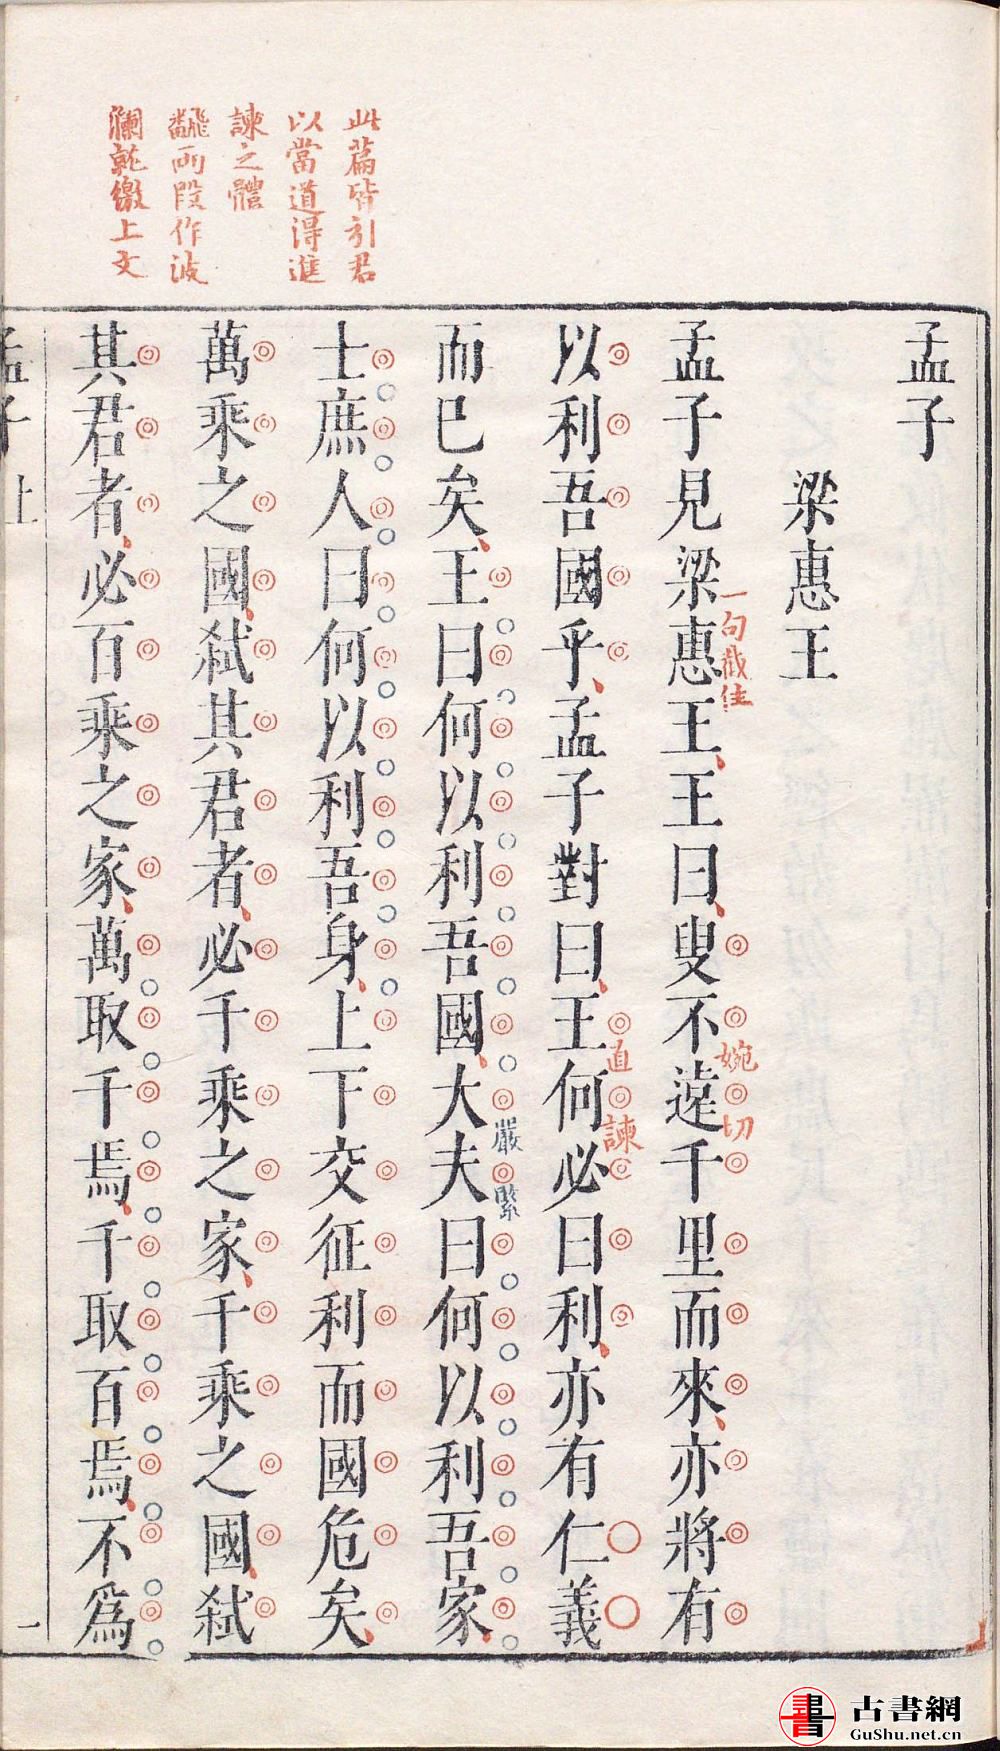 此篇皆引君
以當道得進
諫之體
飜兩段作波
瀾乾繳上文
孟子
梁惠王
孟子見梁惠王王曰叟不遠千里而來亦將有
一句截住
婉切
以利吾國乎孟子對曰王何必曰利亦有仁義
直諫
而已矣王曰何以利吾國大夫曰何以利吾家
嚴緊
士庶人曰何以利吾身上下交征利而國危矣
萬乘之國弒其君者必千乘之家千乘之國弒
其君者必百乘之家萬取千焉千取百焉不爲
孟子 上
一
古書網
GuShu.net.cn